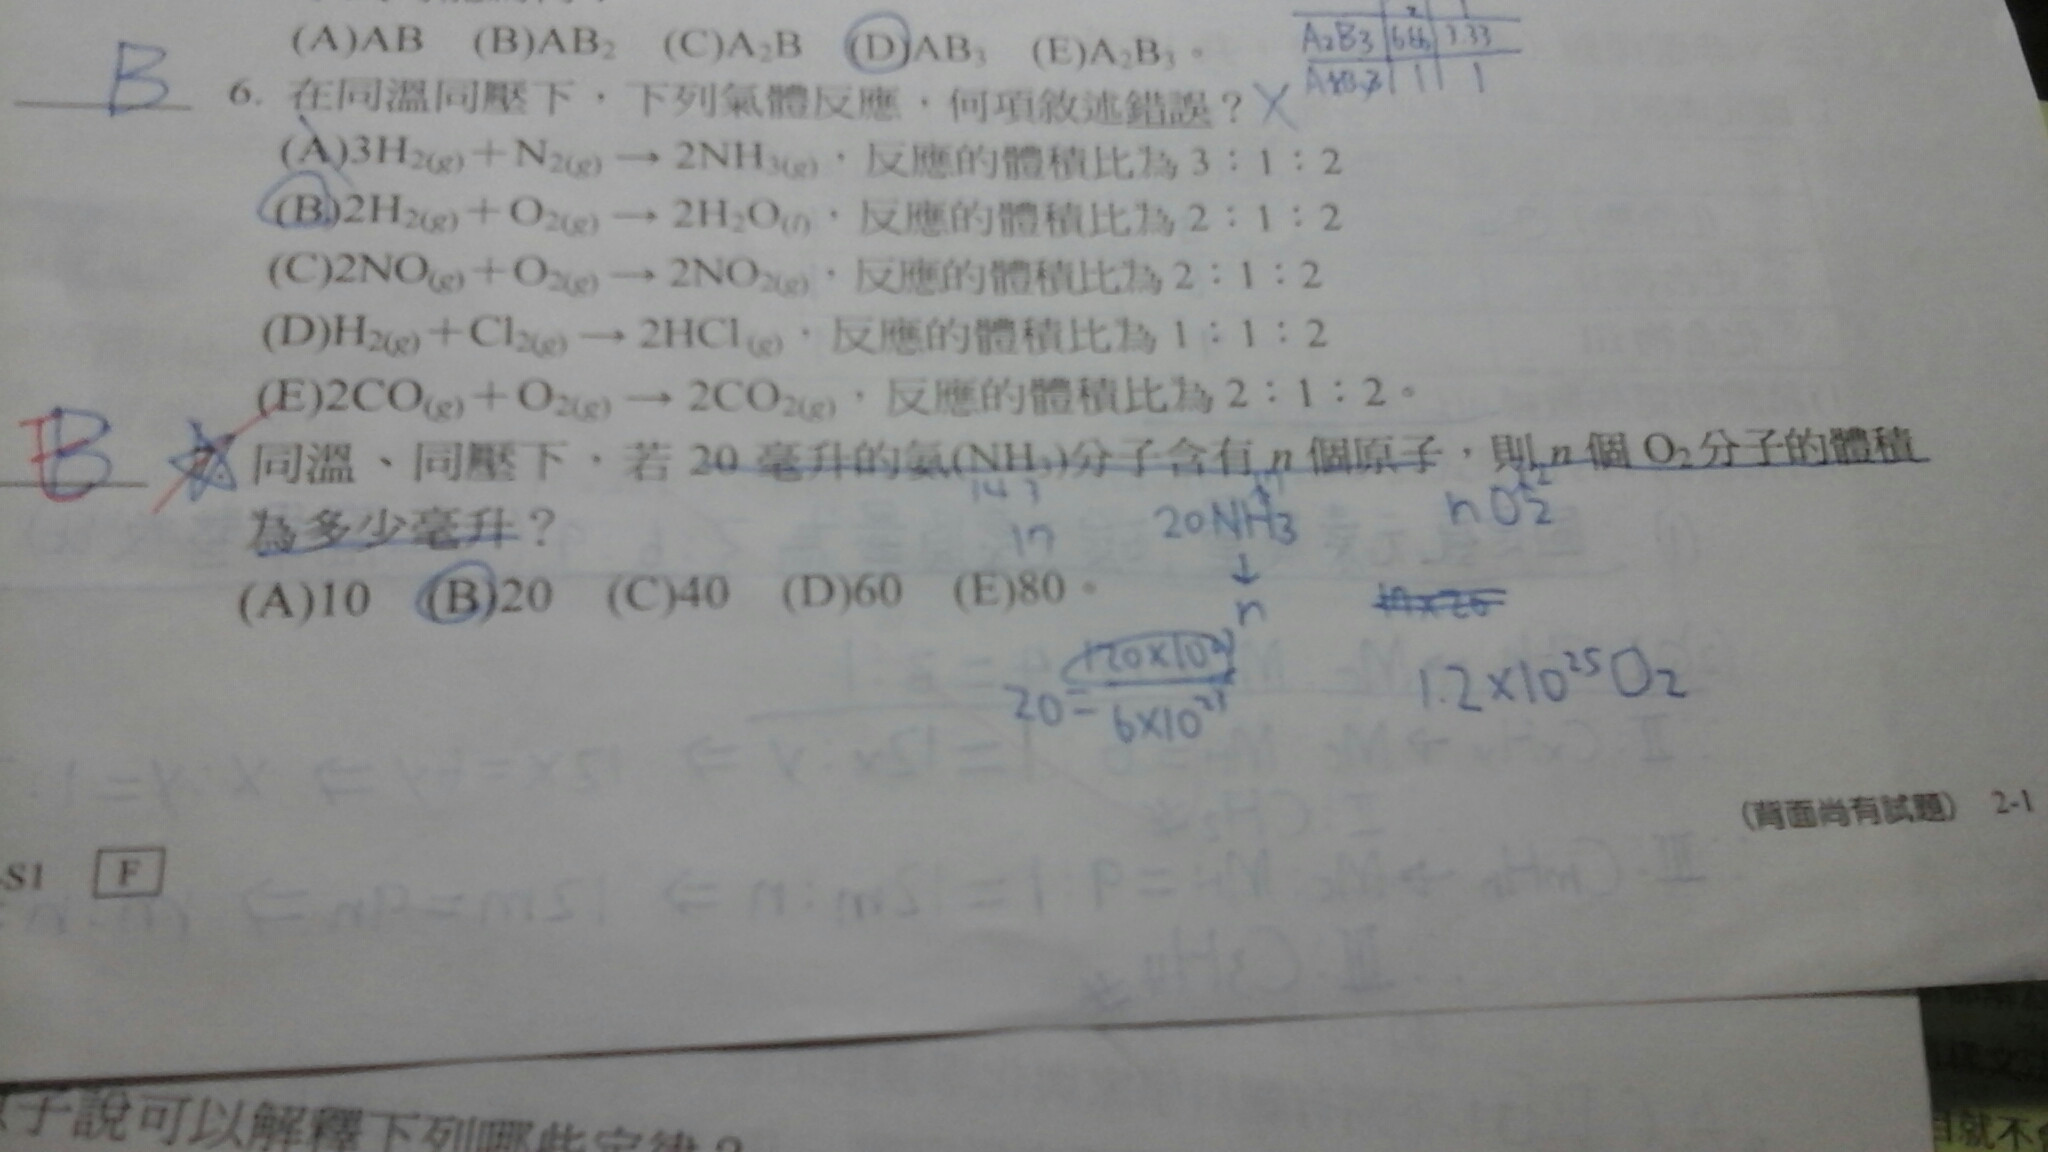 (A)AB (B)AB₂ (C)A₂B (D)AB₃ (E)A₂B₃。
A2B3 6.66 3.33
1 1
B
6. 在同溫同壓下，下列氣體反應，何項敘述錯誤？
(A)3H₂(g)＋N₂(g) → 2NH₃(g)，反應的體積比為 3：1：2
(B)2H₂(g)＋O₂(g) → 2H₂O(l)，反應的體積比為 2：1：2
(C)2NO(g)＋O₂(g) → 2NO₂(g)，反應的體積比為 2：1：2
(D)H₂(g)＋Cl₂(g) → 2HCl(g)，反應的體積比為 1：1：2
(E)2CO(g)＋O₂(g) → 2CO₂(g)，反應的體積比為 2：1：2。
B E
同溫、同壓下，若 20 毫升的氨(NH₃)分子含有 n 個原子，則 n 個 O₂分子的體積
為多少毫升？
14 3
17
20NH3
↓
n
nO2
(A)10 (B)20 (C)40 (D)60 (E)80。
20= 120×10 / 6×10²³
1.2×10²⁵O2
(背面尚有試題) 2-1
-S1 F
子說可以解釋下列哪些定律？